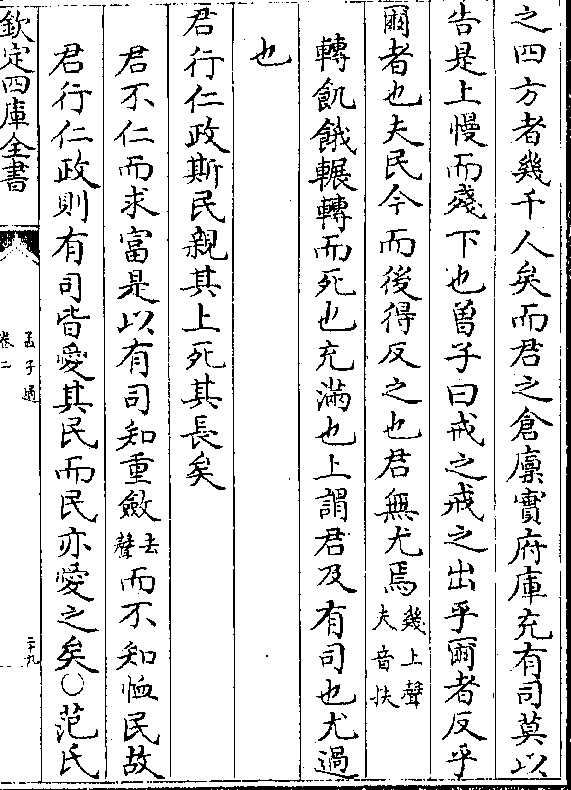 之四方者幾千人矣而君之倉廩實府庫充有司莫以
告是上慢而殘下也曾子曰戒之戒之出乎爾者反乎
爾者也夫民今而後得反之也君無尤焉幾上聲夫音扶
轉飢餓輾轉而死也充滿也上謂君及有司也尤過
也
君行仁政斯民親其上死其長矣
君不仁而求富是以有司知重斂去聲而不知恤民故
君行仁政則有司皆愛其民而民亦愛之矣○范氏
欽定四庫全書
孟子通
卷二
二十九